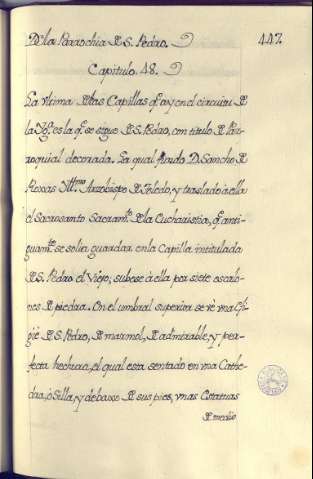 De la Parrochia de S. Pedro.
447.
Capitulo. 48.
La vltima de las Capillas q̃ ay en el circuitu de
la Ygᵃ. es la q̃ se sigue de S. Pedro, con titulo de Par-
roquial decorada. La qual fundo D. Sancho de
Roxas Illᵐᵒ Arzobispo de Toledo, y traslado à ella
el Sacrosanto Sacramᵗᵒ. de la Eucharistia, q̃ anti-
guamᵗᵉ. se solia guardar en la Capilla intitulada
de S. Pedro el Viejo; subese à ella por siete escalo-
nes de piedra. En el umbral superior se vè vna Efi-
gie de S. Pedro, de marmol, de admirable, y per-
fecta hechura, el qual esta sentado en vna Cathe-
dra, ò Silla, y debaxo de sus pies, vnas Estatuas
de medio